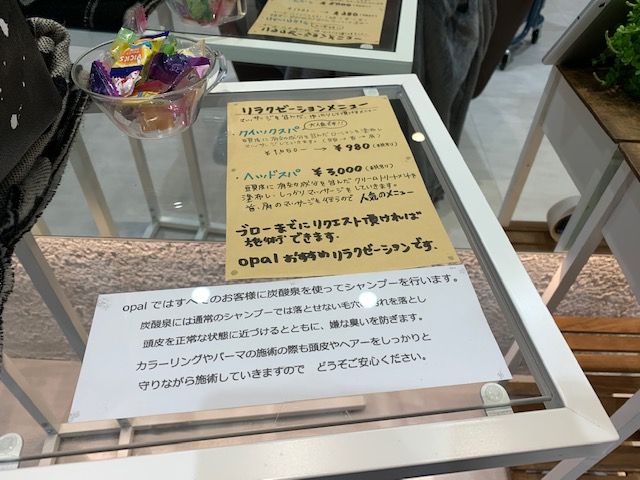 リラクゼーションメニュー
マッサージを含んだ、
クイックスパ 大人気です!!
頭皮に有効な成分を含んだローションを塗布し
マッサージしていきます。
→ ¥980
ヘッドスパ ¥3,000
頭皮に有効な成分を含んだクリームトリートメントを
塗布し、しっかりマッサージをしていきます。
首、肩のマッサージも行うので人気のメニュー
ブローまでにリクエスト頂ければ
施術できます。
opalおすすめリラクゼーションです。
opalではすべてのお客様に炭酸泉を使ってシャンプーを行います。
炭酸泉には通常のシャンプーでは落とせない毛穴汚れを落とし
頭皮を正常な状態に近づけるとともに、嫌な臭いを防ぎます。
カラーリングやパーマの施術の際も頭皮やヘアーをしっかりと
守りながら施術していきますので どうぞご安心ください。